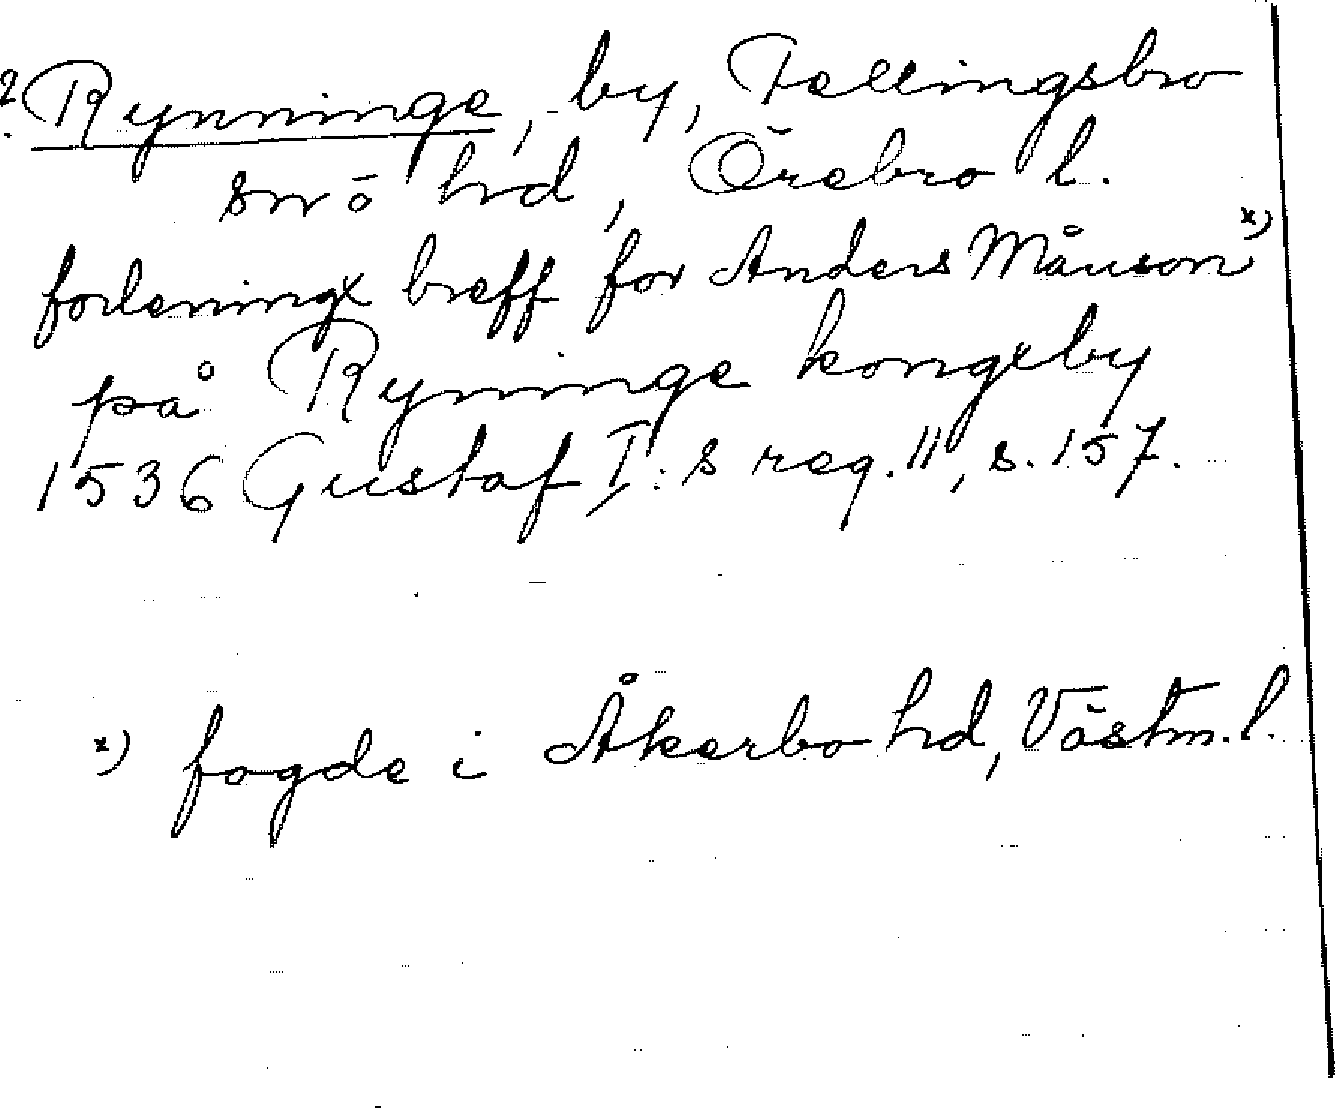 ? Rynninge, by, Fellingsbro
snö hd, Örebro l.
forleningx breff for Anders Månson x)
på Ryninge kongxby
1536 Gustaf I:s reg. 11, s. 157.
x) fogde i Åkerbo hd, Västm. l.